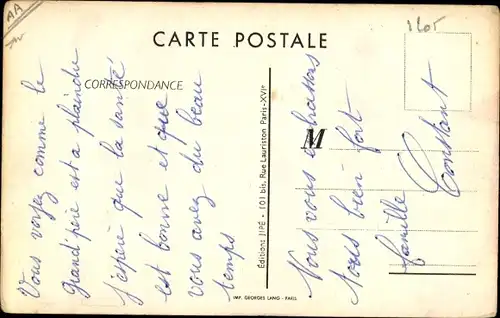 AA
1605
CARTE POSTALE
CORRESPONDANCE
Vous voyez comme le
Grand'père est a plaindre
j'espère que la santé
est bonne et que
vous avez du beau
temps
Éditions JIPÉ • 101 bis, Rue Lauriston Paris-XVIe
M
Nous vous embrassons
tous bien fort
famille Constant
IMP. GEORGES LANG - PARIS